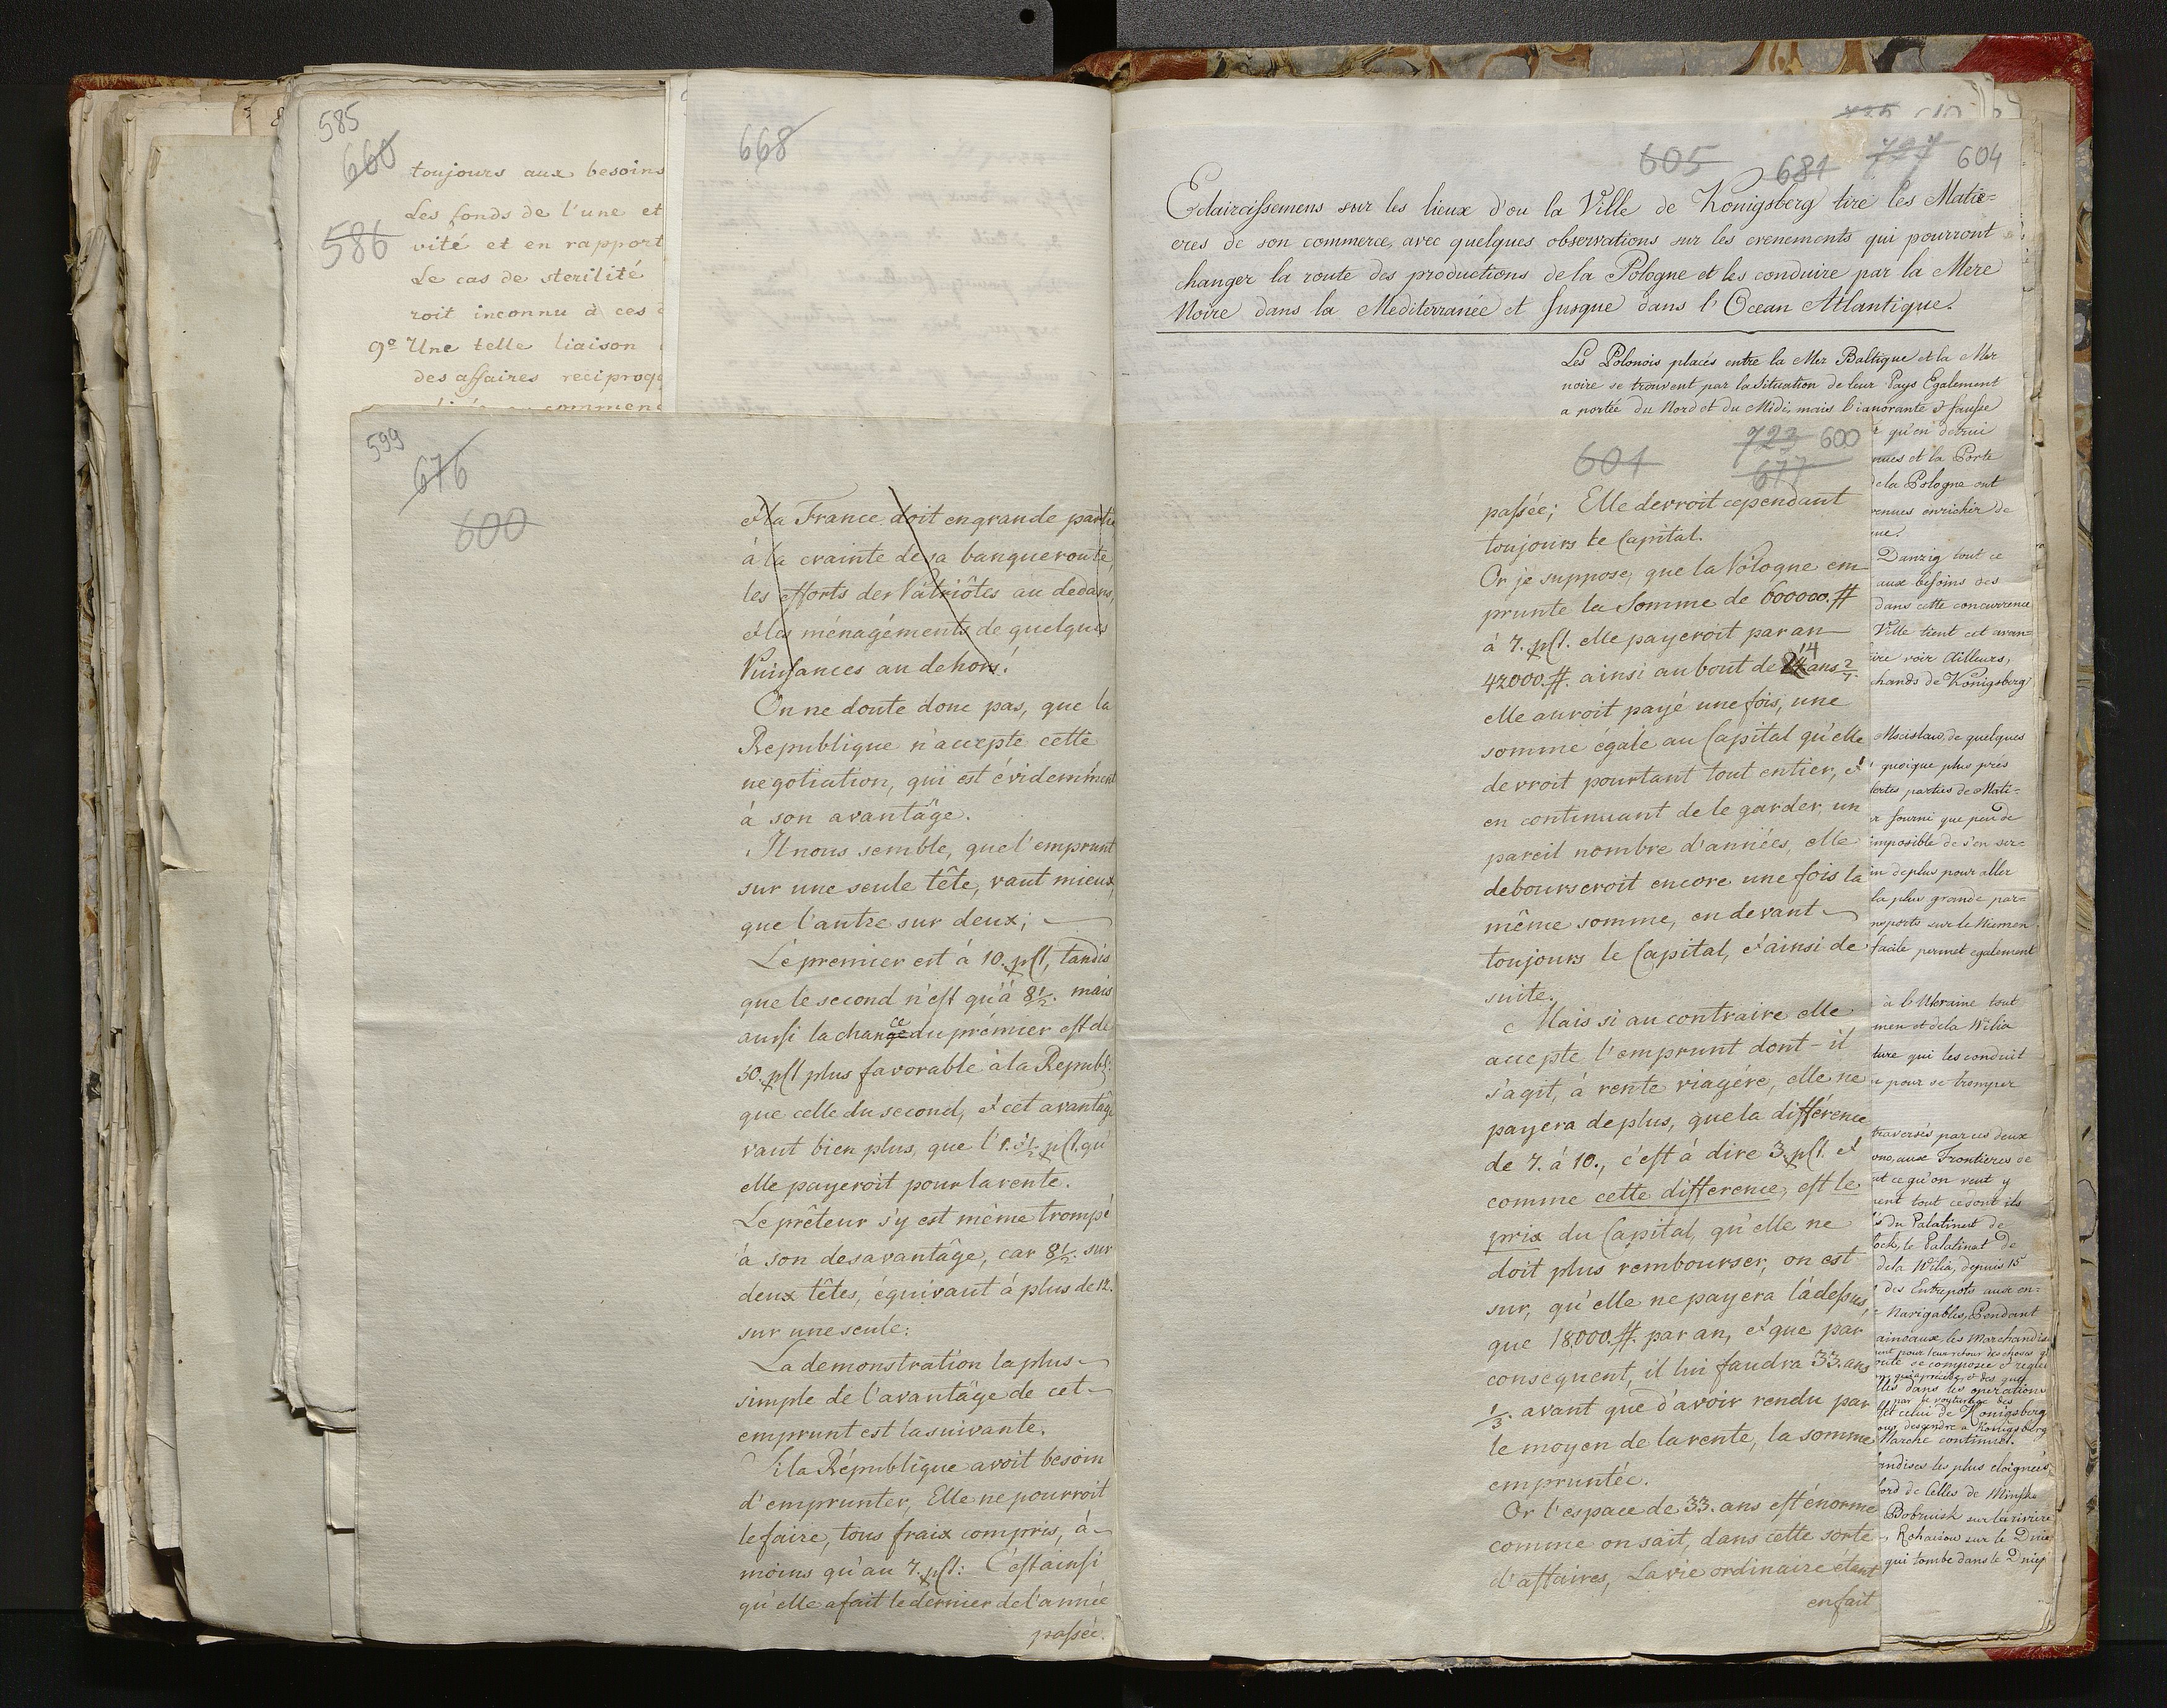 585
660
586
toujours aux besoins
Les fonds de l'une et
vité et en rapport
Le cas de sterilité
roit inconnu à ces
9º Une telle liaison
des affaires reciproq
commenc
668
599
676
600
et la France doit en grande partie
à la crainte de sa banqueroute,
les efforts des Patriôtes au dedans,
et les ménagéments de quelques
Puissances au dehors!
On ne doute donc pas, que la
Republique n'accepte cette
negotiation, qui est évidemment
à son avantâge.
Il nous semble, que l'emprunt
sur une seule tête, vaut mieux,
que l'autre sur deux;
Le premier est à 10. pCt, tandis
que le second n'est qu'à 8½. mais
aussi la chance du prémier est de
50. pCt plus favorable à la Republ:
que celle du second, et cet avantâge
vaut bien plus, que l'1.½ pCt. qu'
elle payeroit pour la rente.
Le prêteur s'y est même trompé
à son desavantâge, car 8½. sur
deux têtes, équivaut à plus de 12.
sur une seule:
La demonstration la plus
simple de l'avantâge de cet
emprunt est la suivante.
Si la République avoit besoin
d'emprunter, Elle ne pourroit
le faire, tous fraix compris, à
moins qu'au 7. pCt: C'est ainsi
qu'elle a fait le dernier de l'année
passée.
605 681 727 604
Eclaircissemens sur les lieux d'ou la Ville de Konigsberg tire les Matie=
eres de son commerce, avec quelques observations sur les evenements qui pourront
changer la route des productions de la Pologne et les conduire par la Mere
Noire dans la Mediterranée et Jusque dans l'Ocean Atlantique.
Les Polonois placés entre la Mer Baltique et la Mer
noire se trouvent par la Situation de leur Pays Egalement
a portée du Nord et du Midi, mais l'ignorante & fausse
601
723 600
677
passée; Elle devroit cependant
toujours le Capital.
Or je suppose, que la Pologne em
prunte la Somme de 600000.#
à 7. pCt. elle payeroit par an
42000.#. ainsi au bout de 14 ans 2/7.
elle auroit payé une fois, une
somme égale au Capital qu'elle
devroit pourtant tout entier, et
en continuant de le garder, un
pareil nombre d'années, elle
debourseroit encore une fois la
même somme, en devant
toujours le Capital, et ainsi de
suite.
Mais si au contraire elle
accepte l'emprunt dont-il
s'agit, à rente viagére, elle ne
payera de plus, que la différence
de 7. à 10., c'est à dire 3. pCt. et
comme cette difference, est le
prix du Capital, qu'elle ne
doit plus rembourser, on est
sur, qu'elle ne payera làdessus,
que 18,000.#. par an, et que par
consequent, il lui faudra 33. ans
⅓. avant que d'avoir rendu par
le moyen de la rente, la somme
empruntée.
Or l'espace de 33. ans est énorme
comme on sait, dans cette sorte
d'affaires, La vie ordinaire etant
en fait
qu'en detrui
nues et la Porte
de la Pologne ont
venues enricher de
que.
Danzig tout ce
aux besoins des
dans cette concurrence
Ville tient cet avan=
ire voir Ailleurs,
chands de Konigsberg
Mscislaw, de quelques
quoique plus prés
fertes parties de Mati=
r fourni que peu de
imposible de s'en ser=
in deplus pour aller
la plus grande par=
nsports sur le Niemen
facile permet egalement
à l'Ukraine tout
men et de la Wilia
ture qui les conduit
pour se tremper
traversés par ces deux
one, aux Frontieres de
nt ce qu'on veut y
vent tout ce dont ils
s du Palatinat de
ock, le Palatinat de
de la Wilia, depuis 15
des Entrepots aux en=
= Navigables, Pendant
aineaux, les Marchandis
oute se compose et regle
lles dans les operations
et celui de Konigsberg
our descendre a Konigsberg
Marche continuel.
andises les plus eloignées
ord de Celles de Minske
Bobruisk sur la riviere
Rohaisow sur le Dnie
qui tombe dans le Dniep